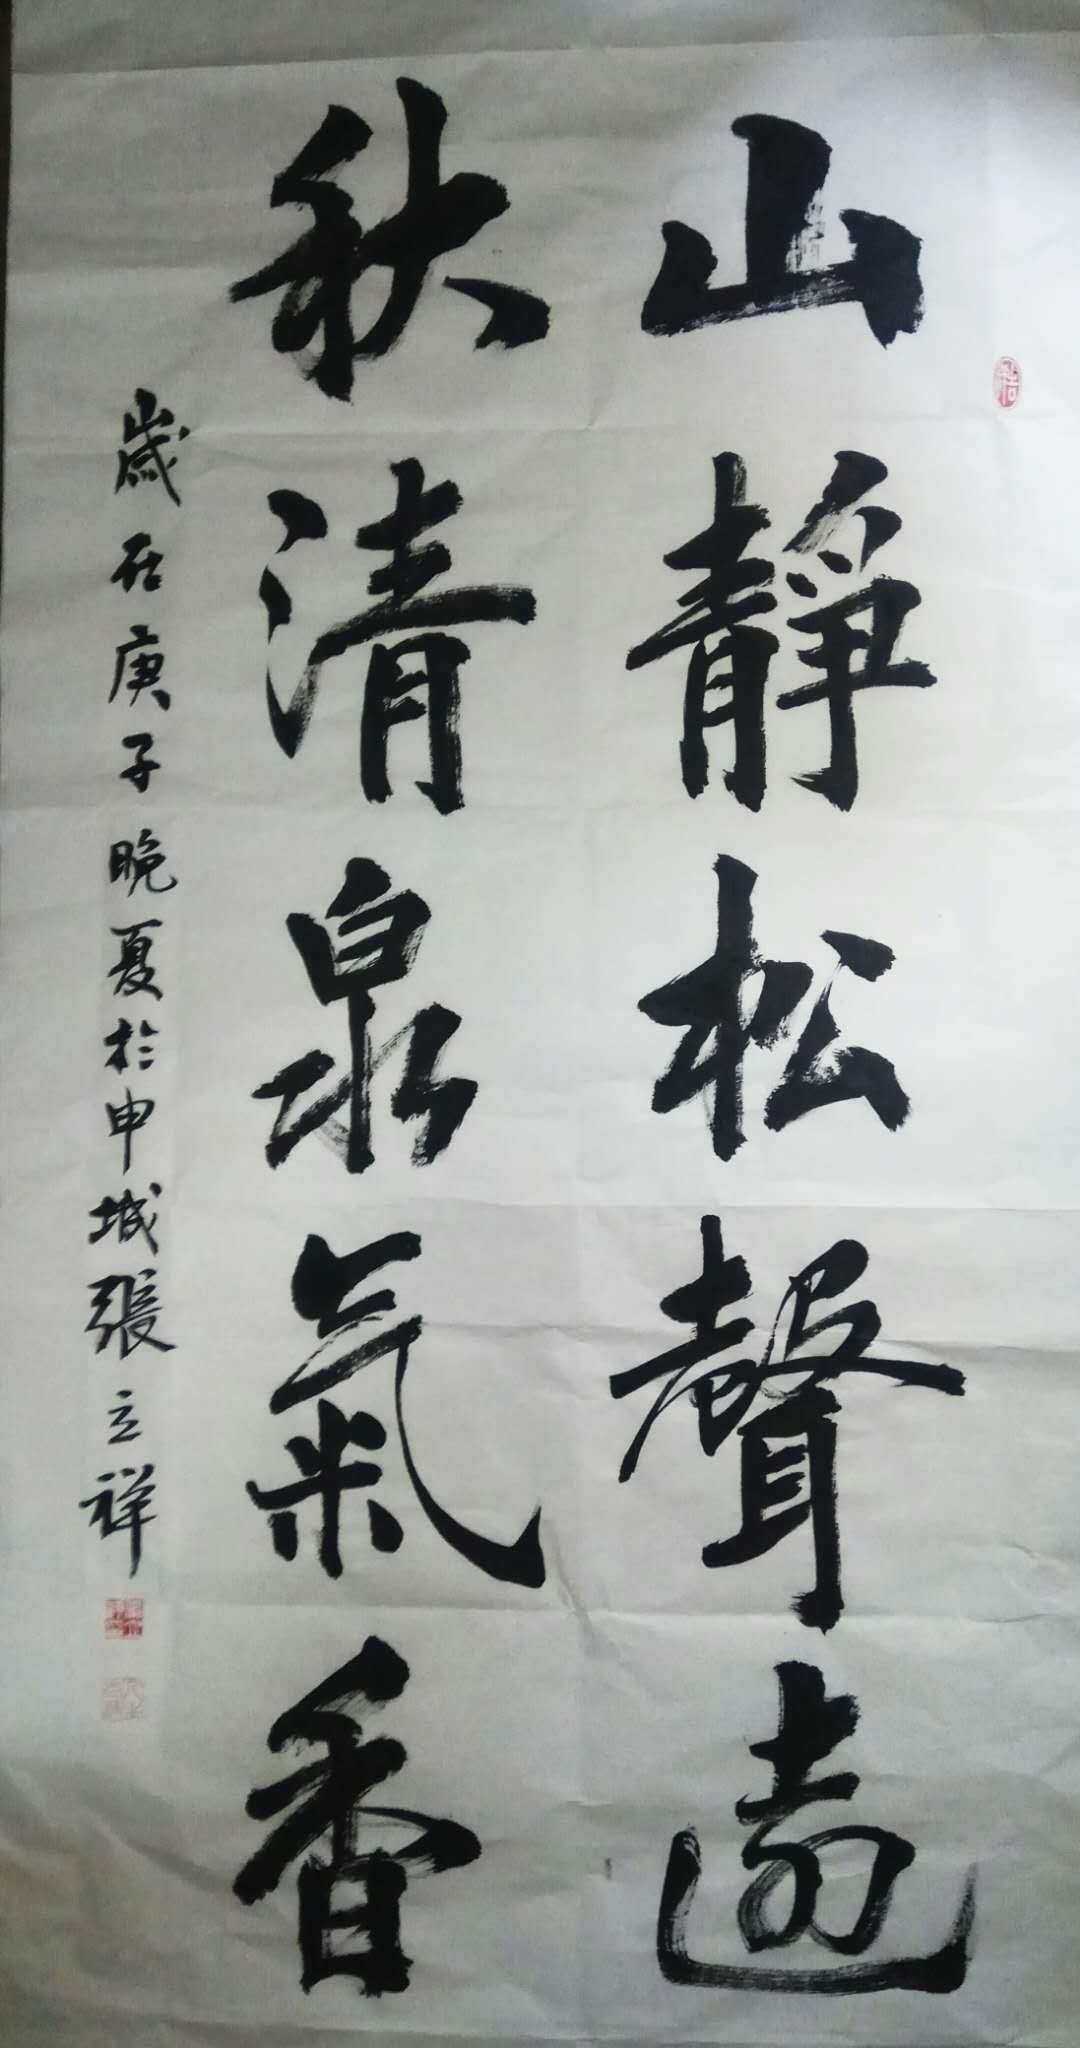 山靜松聲遠
秋清泉氣香
歲在庚子晚夏於申城張立祥